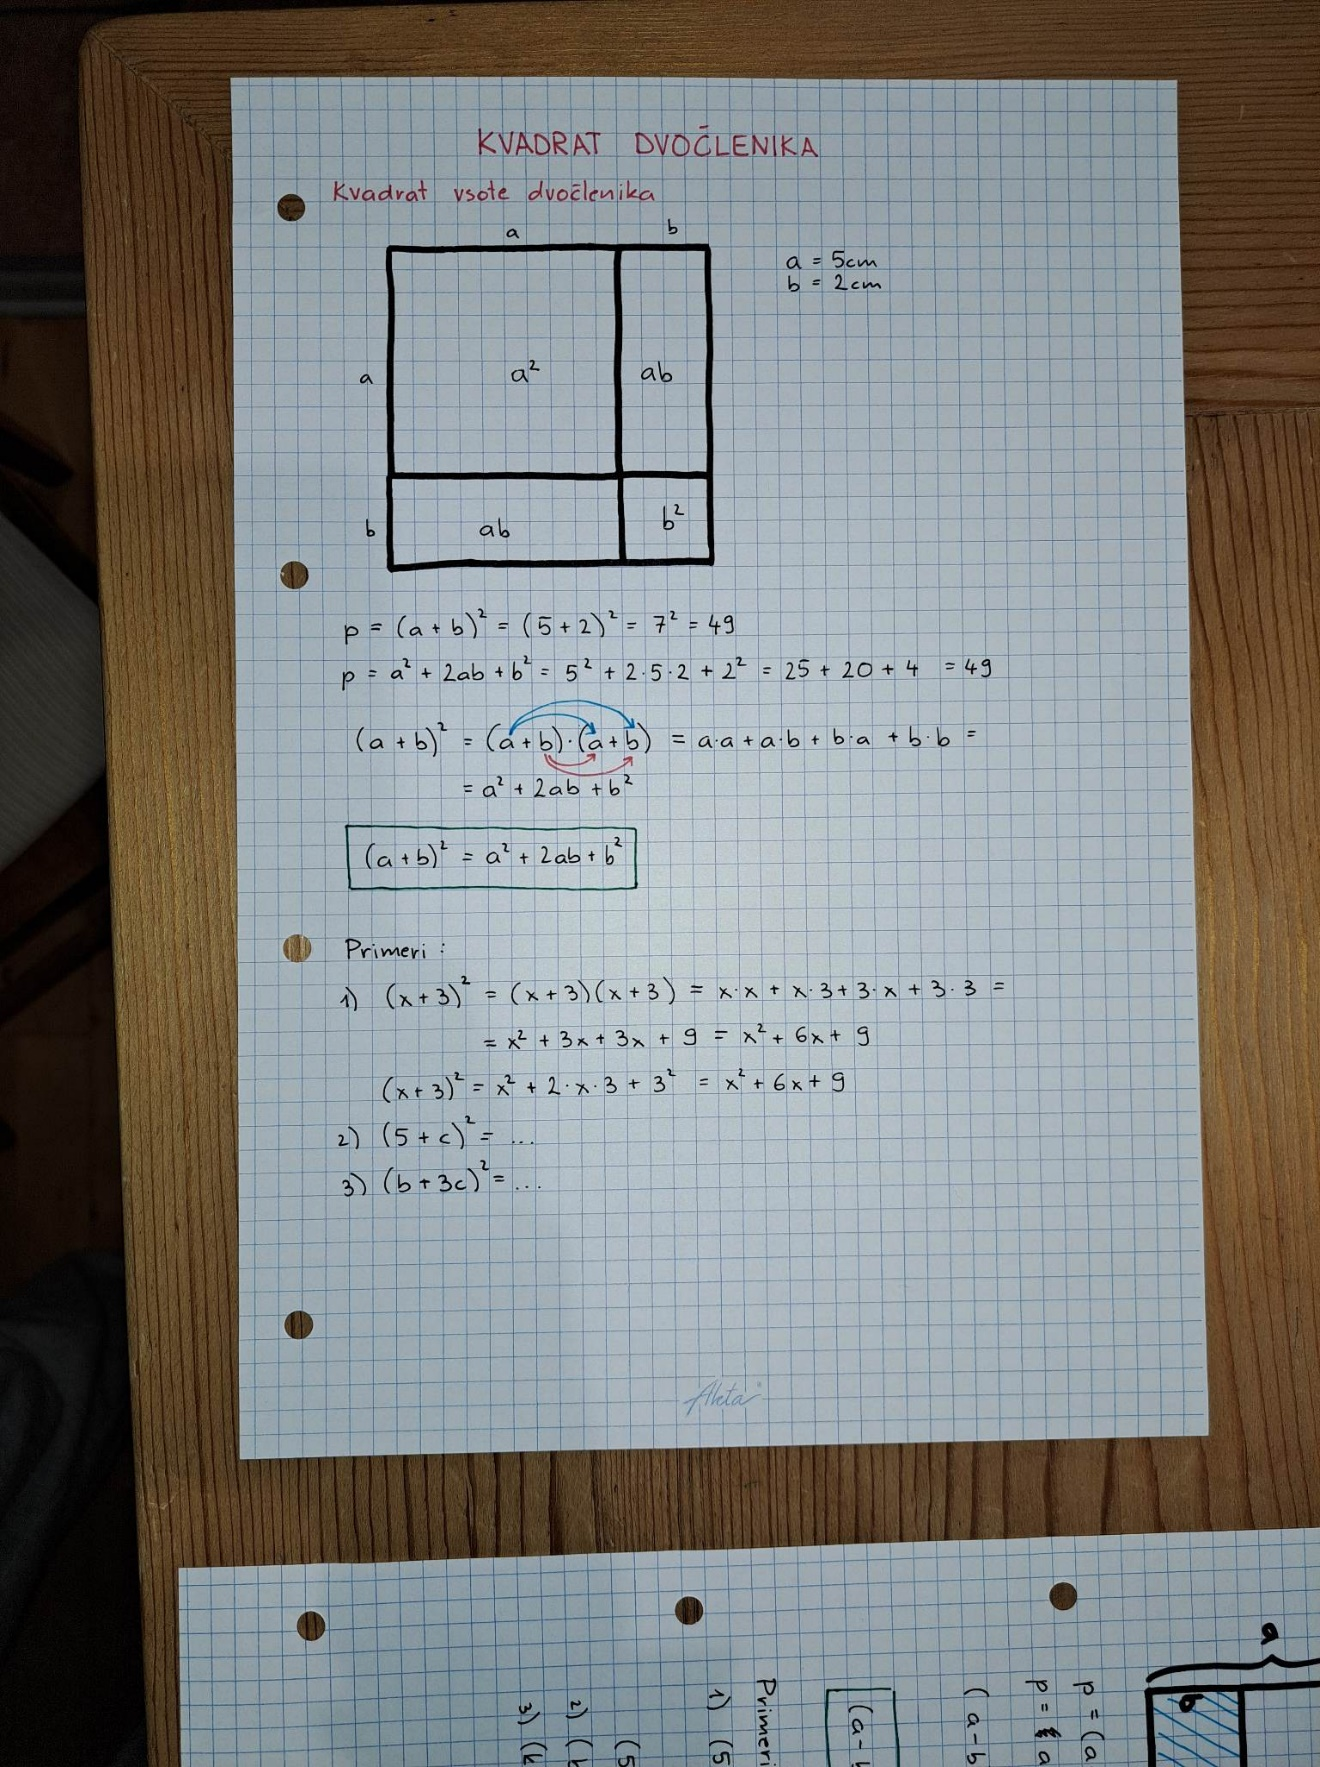 KVADRAT DVOČLENIKA
Kvadrat vsote dvočlenika
a b
a = 5cm
b = 2cm
a a² ab
b ab b²
p = (a + b)² = (5 + 2)² = 7² = 49
p = a² + 2ab + b² = 5² + 2·5·2 + 2² = 25 + 20 + 4 = 49
(a + b)² = (a + b)·(a + b) = a·a + a·b + b·a + b·b =
= a² + 2ab + b²
(a + b)² = a² + 2ab + b²
Primeri :
1) (x + 3)² = (x + 3)(x + 3) = x·x + x·3 + 3·x + 3·3 =
= x² + 3x + 3x + 9 = x² + 6x + 9
(x + 3)² = x² + 2·x·3 + 3² = x² + 6x + 9
2) (5 + c)² = ...
3) (b + 3c)² = ...
Akta
a
b
p = (a
p = a
(a - b
(a -
Primeri
1) (5
(5
2) (
3) (